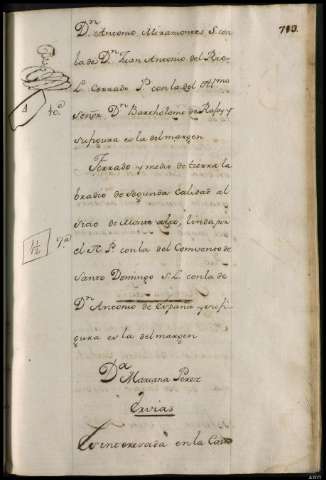 713.
Dn. Antonio Miramontes S. con
la de Dn. Juan Antonio del Rio
L. Cerrado P. con la del Illmo
Señor Dn. Bartholome de Rajoy y
su figura es la del margen
1
Ferrado y medio de tierra la
bradio de segunda Calidad al
sitio de Monte, linda por
el N. P. con la del Convento de
Santo Domingo S. L. con la de
Dn. Antonio de España y su fi
gura es la del margen
7a.
Da.
Mariana Perez
Erbias
Es interesada en la Casa